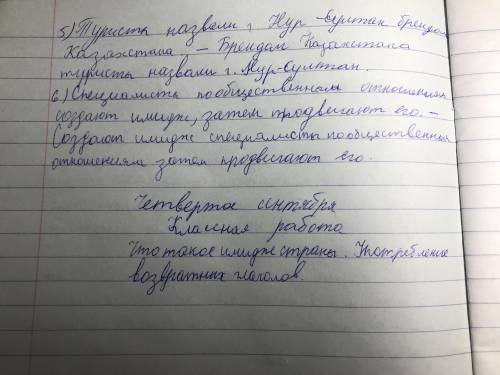 5) Туристы назвали г. Нур-Султан брендом
Казахстана. – Брендом Казахстана
туристы назвали г. Нур-Султан.
6) Специалисты по общественным отношениям
создают имидж, затем продвигают его. –
Создают имидж специалисты по общественным
отношениям затем продвигают его.
Четвертое сентября
Класная работа
Что такое имидж страны. Употребление
возвратных глаголов.